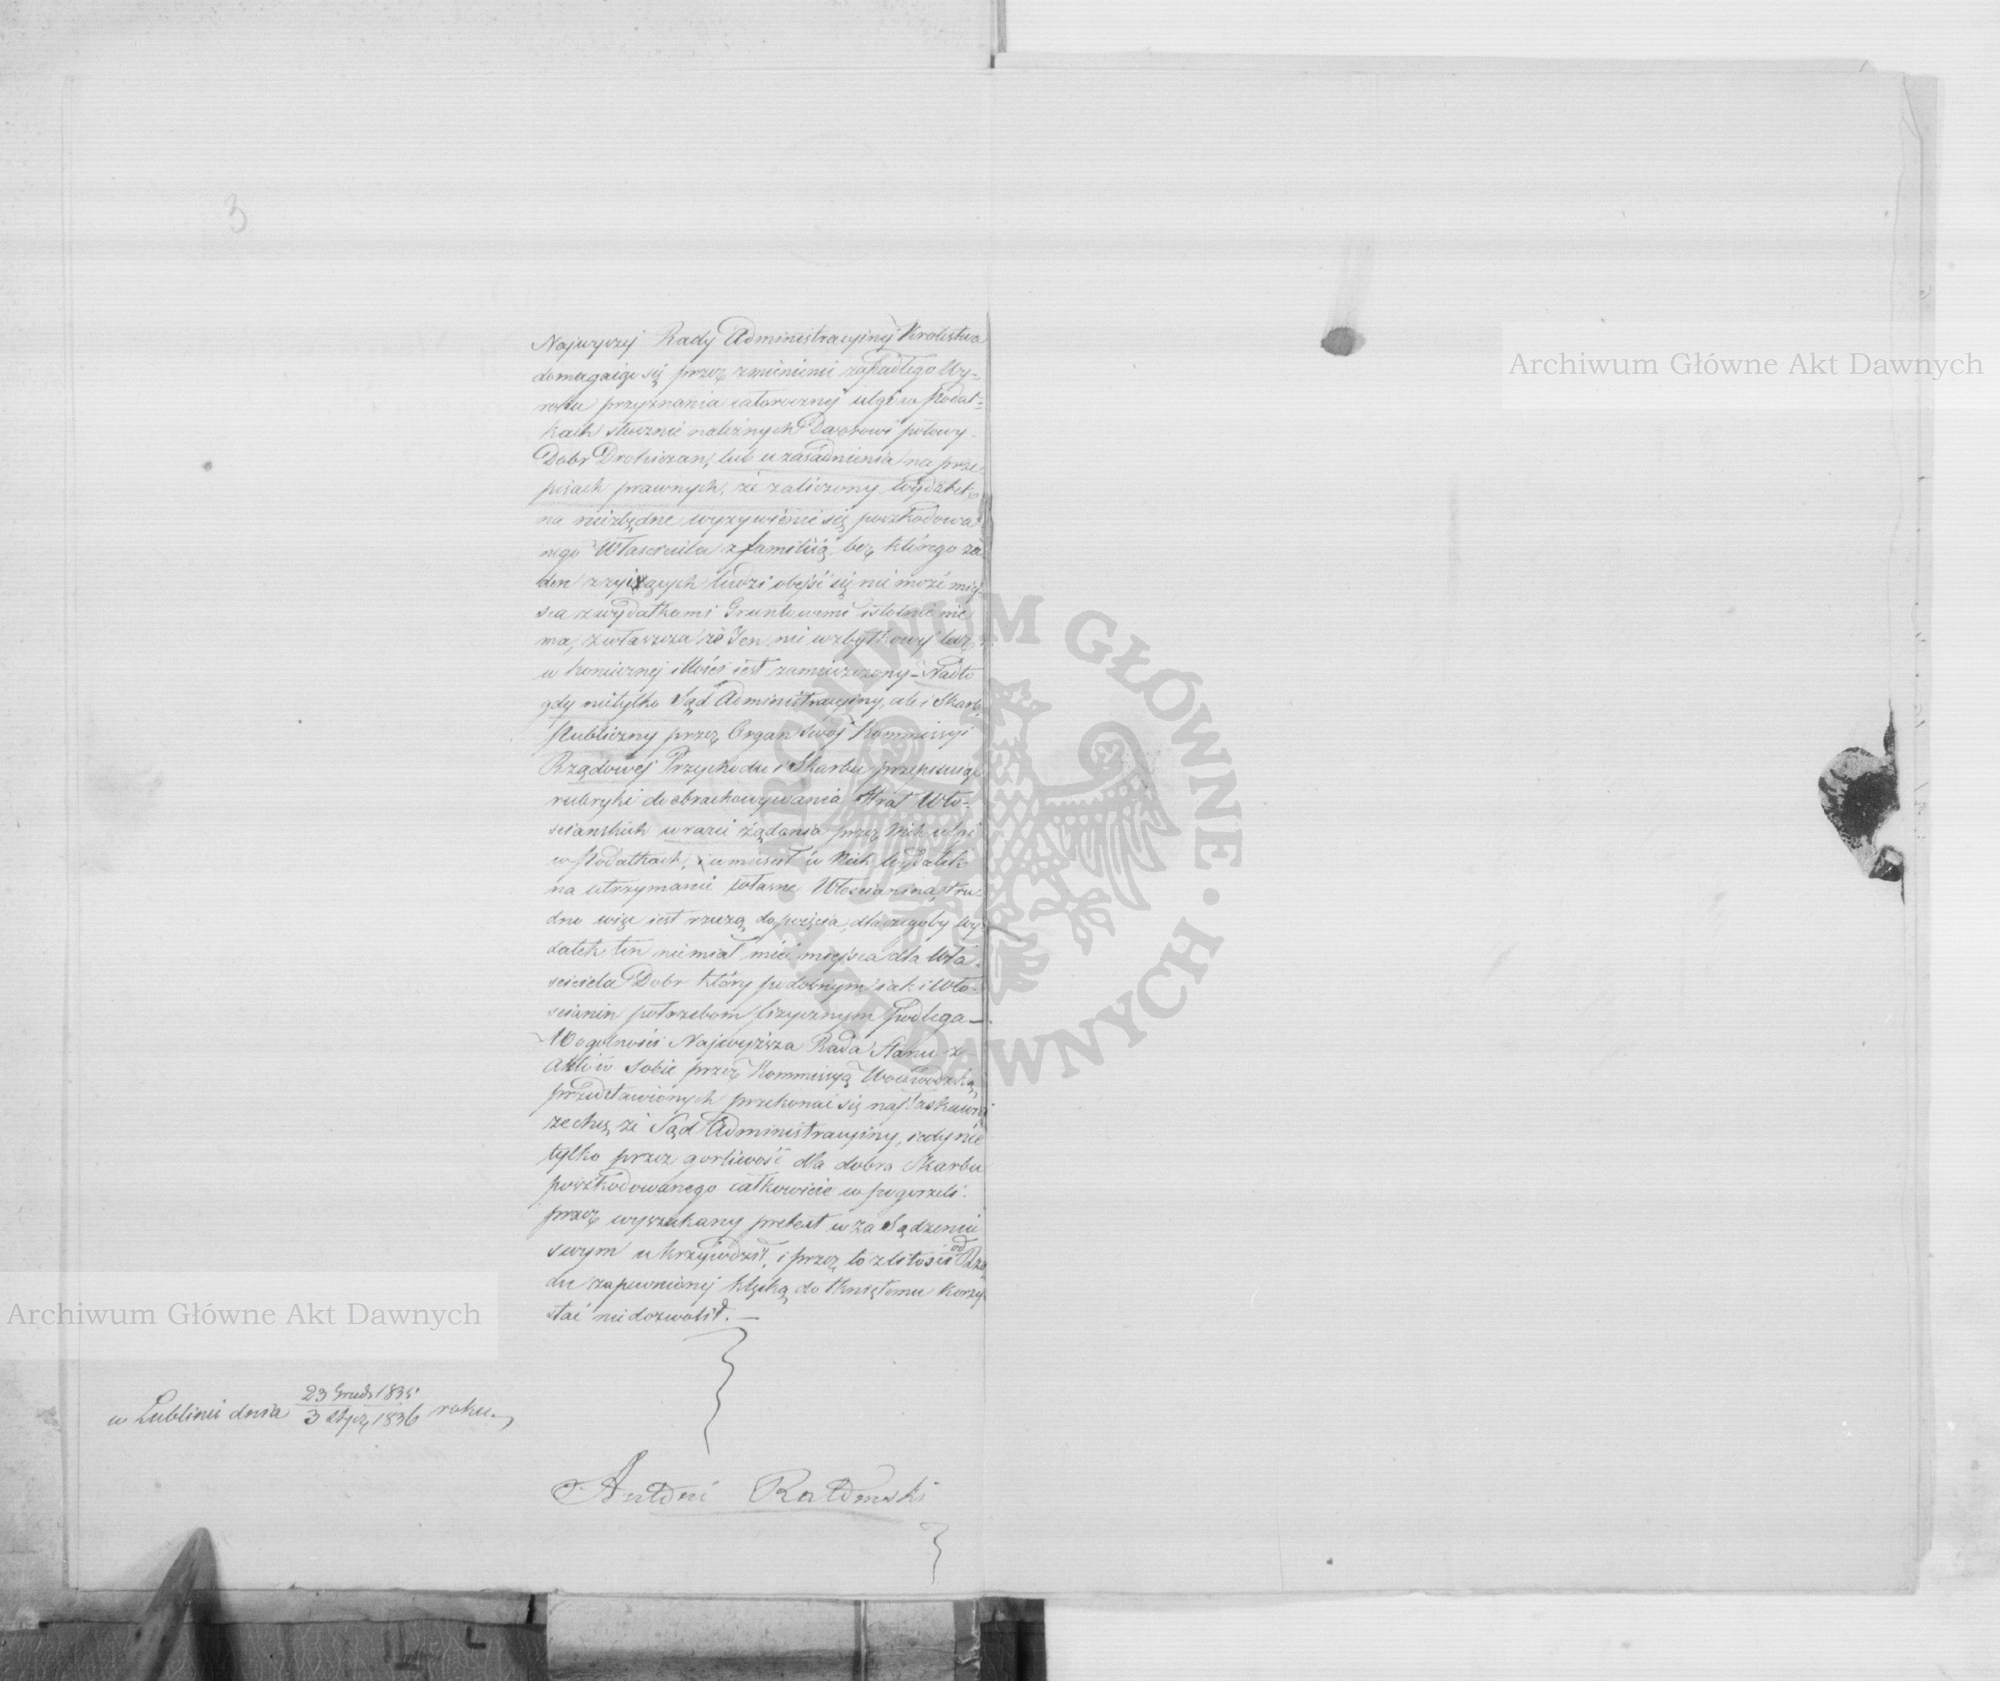 3
Najwyższej Rady Administracyjnej Krolestwa
domagaiąc się przez zmienienie zapadłego Wy=
roku przyznania całorocznej ulgi w Podat=
kach słusznie należnych Dworowi połowy
Dobr Drohiczan, lub uzasadnienia na prze
pisach prawnych, że zaliczony Wydatek
na niezbędne wyżywienie się poszkodowa
nego Właściciela z familiią, bez którego ża
den z żyiących ludzi obejść się nie może miey
sca z wydatkami Gruntowemi istotnie nie
ma, zwłaszcza że Ten nie w zbytkowey lecz
w koniecznej ilłości iest zamieszczony – Nadto
gdy nietylko Sąd Administracyiny, ale i Skarb
Publiczny przez Organ swój Kommissyi
Rządowéj Przychodu i Skarbu przepisuiąc
rubryki do obrachowywania Strat Wło-
scianskich w razie żądania przez Nich ulgi
w Podatkach, umieścił w Nich Wydatek
na utrzymanie własne Włoscianina, tru
dno więc iest rzeczą do poięcia, dlaczegoby Wy
datek ten niemiał mieć miejsca dla Wła-
sciciela Dobr który podobnym iak i Wło-
scianin potrzebom fizycznym podlega —
W ogolności Najwyższa Rada Stanu z
Aktów sobie przez Kommissyą Woiewodzką
przedstawionych przekonać się najłaskawiéj
zechce że Sąd Administracyiny, iedynie
tylko przez gorliwość dla dobra Skarbu
poszkodowanego całkowicie w pogorzeli
przez wyszukany pretext w za Sądzeniu
swym ukrzywdził, i przez to z litości od Rzą
du zapewnionej klęską dotkniętemu korzy
stać niedozwolił. —
w Lublinie dnia 23 Grud. 1835 / 3 Stycz. 1836 roku
Archiwum Główne Akt Dawnych
Archiwum Główne Akt Dawnych
ARCHIWUM GŁÓWNE · AKT DAWNYCH ·